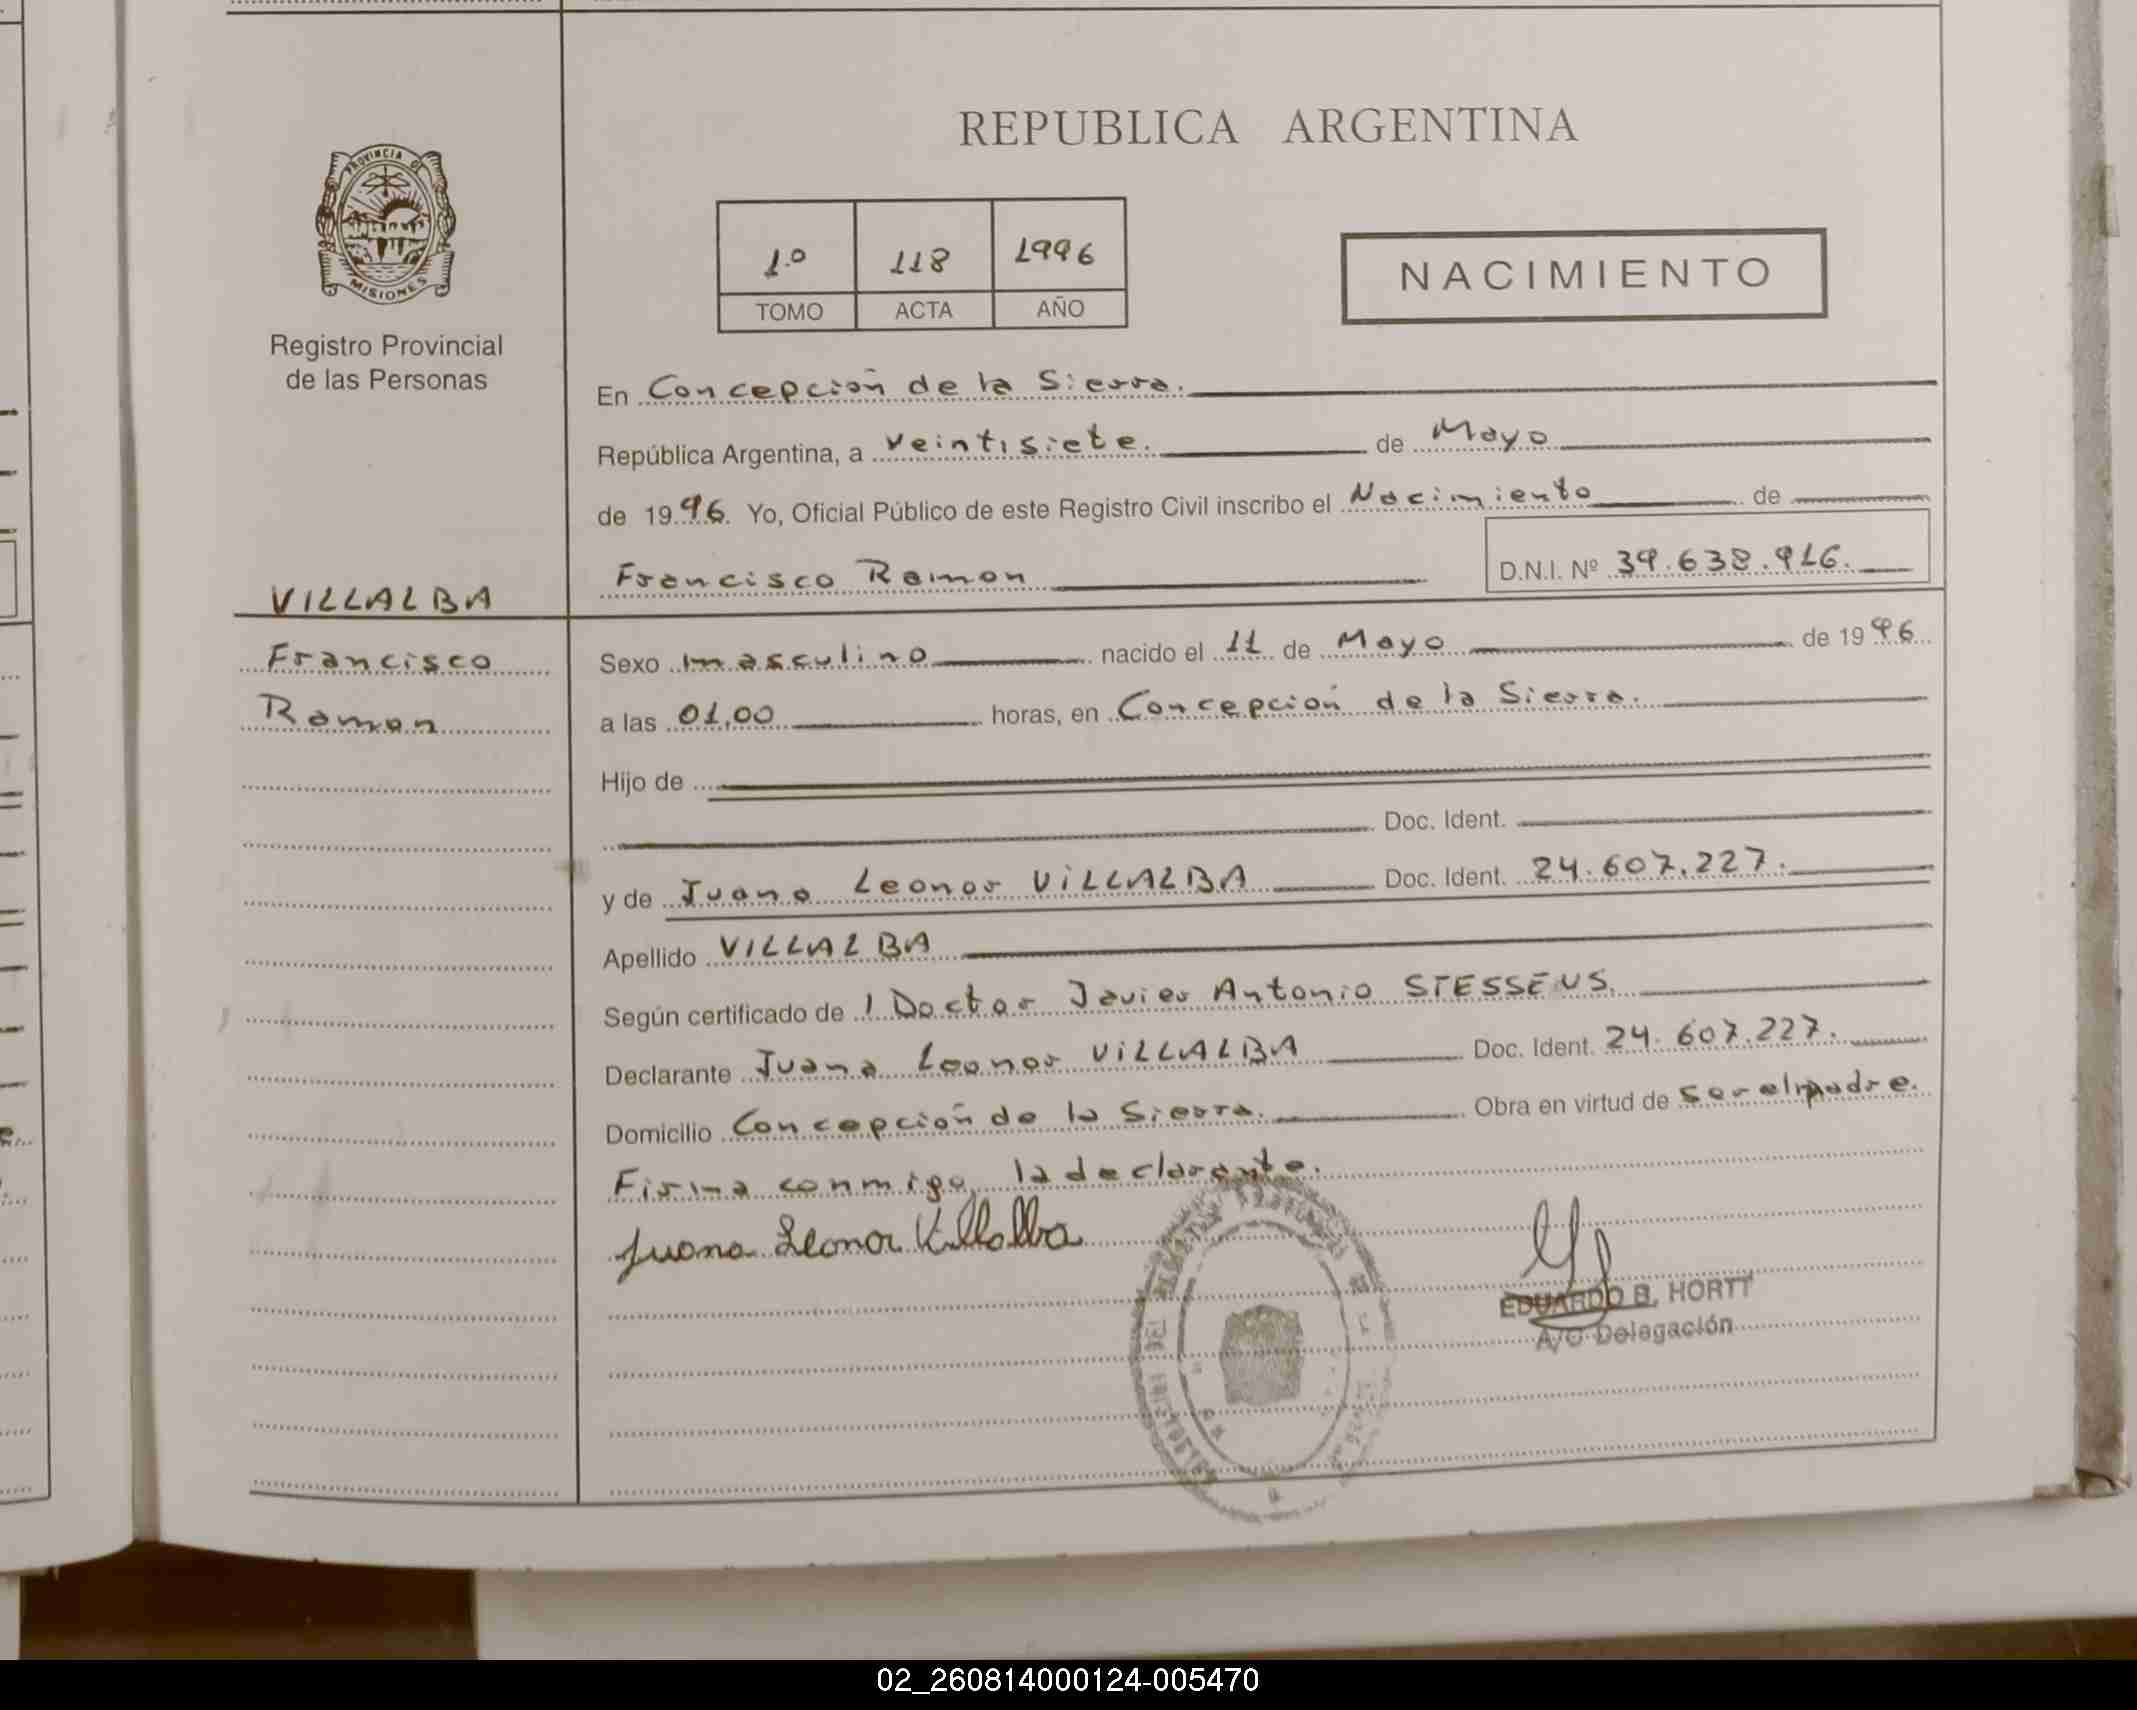 PROVINCIA DE
MISIONES
Registro Provincial
de las Personas
REPUBLICA ARGENTINA
1º 118 1996
TOMO ACTA AÑO
NACIMIENTO
En Concepción de la Sierra.
República Argentina, a veintisiete. de Mayo
de 1996. Yo, Oficial Público de este Registro Civil inscribo el Nacimiento de
Francisco Ramon D.N.I. Nº 39.638.916.
VILLALBA
Francisco
Ramon
Sexo masculino nacido el 11 de Mayo de 1996
a las 01,00 horas, en Concepción de la Sierra.
Hijo de
Doc. Ident.
y de Juana Leonor VILLALBA Doc. Ident. 24.607.227.
Apellido VILLALBA
Según certificado de l Doctor Javier Antonio STESSENS.
Declarante Juana Leonor VILLALBA Doc. Ident. 24.607.227.
Domicilio Concepción de la Sierra. Obra en virtud de ser el madre.
Firma conmigo, la declarante.
Juana Leonor Villalba
EDUARDO B. HORTT
A/C Delegación
02_260814000124-005470